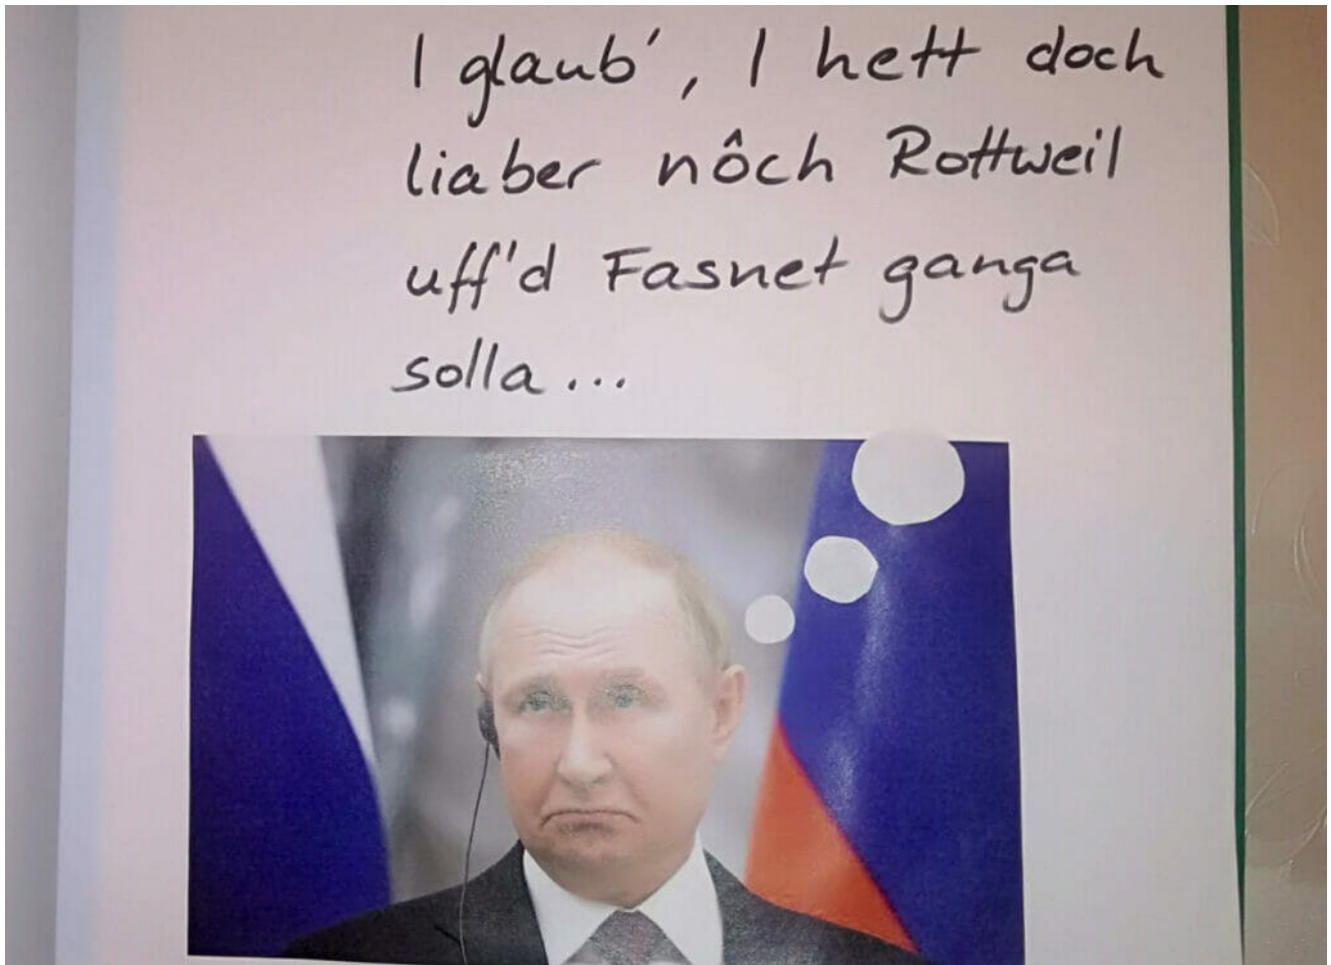 I glaub', I hett doch
liaber nôch Rottweil
uff'd Fasnet ganga
solla...